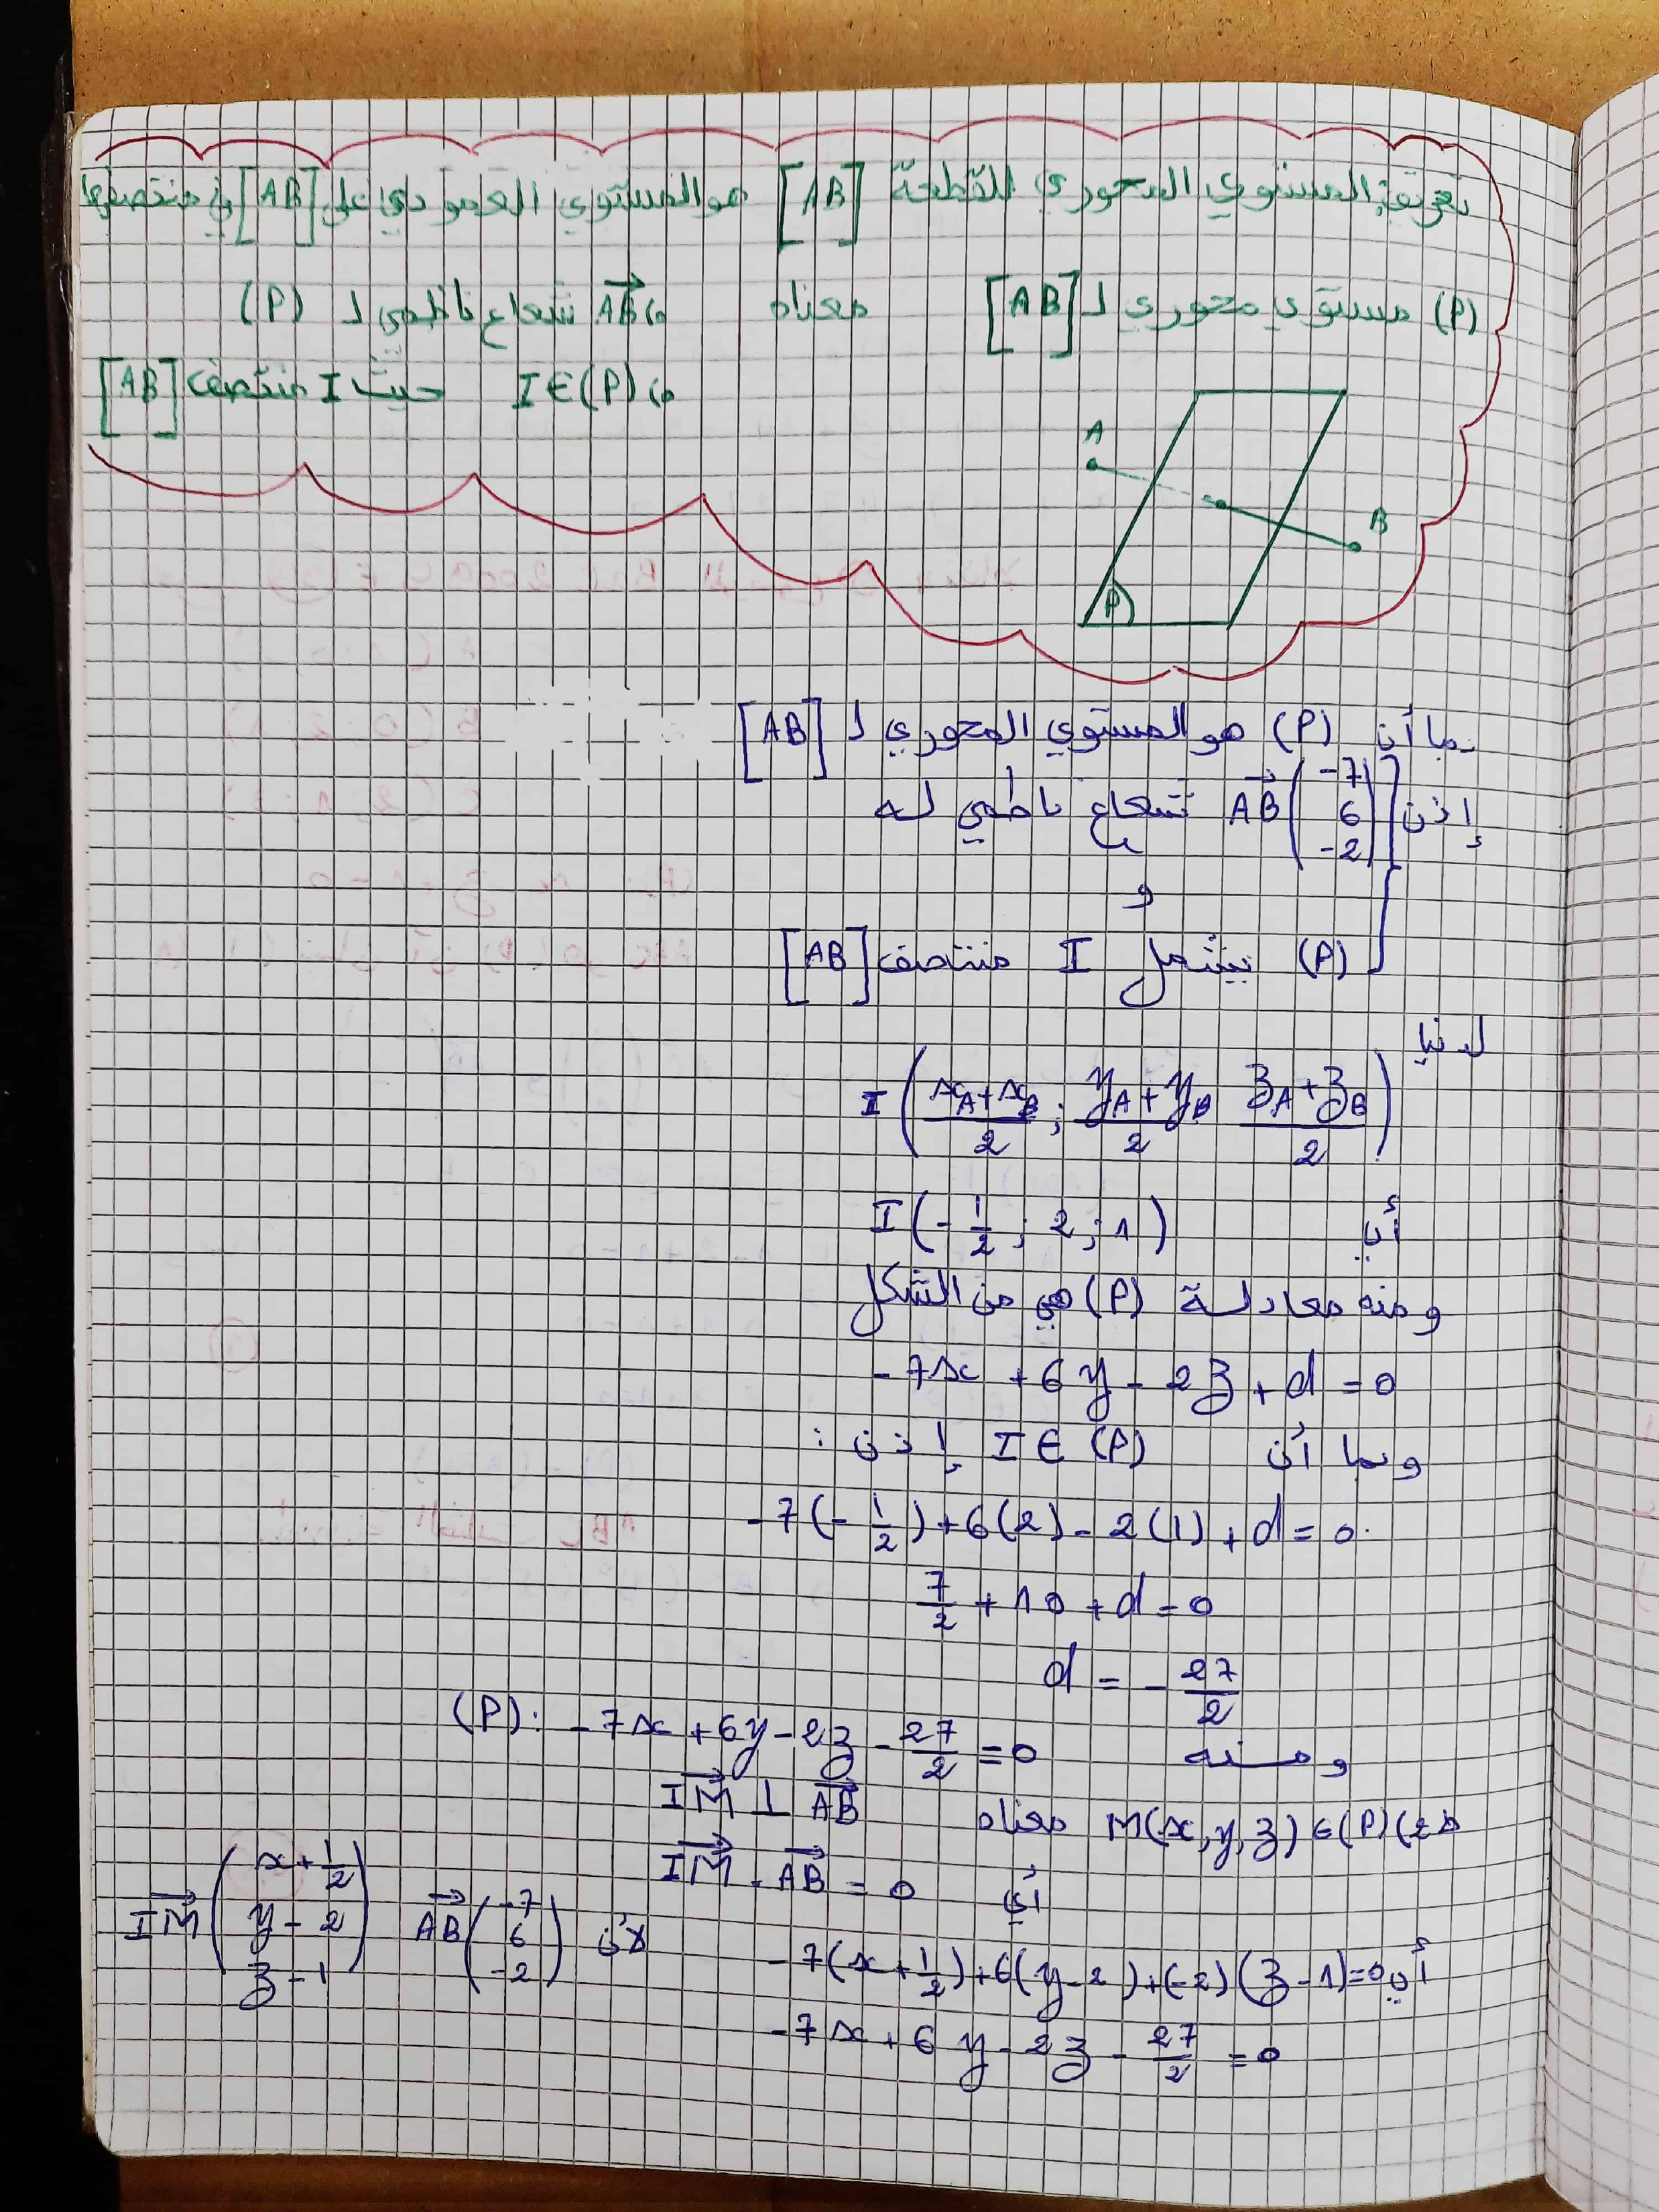 تعريف: المستوي المحوري للقطعة [AB] هو المستوي العمودي على [AB] في منتصفها
(P) مستوي محوري لـ [AB] معناه AB شعاع ناظمي لـ (P)
I∈(P) حيث I منتصف [AB]
A
B
P
بما أن (P) هو المستوي المحوري لـ [AB]
إذن AB(-7 6 -2) شعاع ناظمي له
و
(P) يشمل I منتصف [AB]
لدنيا
I(xA+xB/2 ; yA+yB/2 zA+zB/2)
أي I(-1/2 ; 2 ; 1)
ومنه معادلة (P) هي من الشكل
-7x + 6y - 2z + d = 0
وبما أن I∈(P) إذن :
-7(-1/2)+6(2)-2(1)+d=0
7/2 + 10 + d = 0
d = -27/2
ومنه (P): -7x+6y-2z-27/2=0
M(x,y,z)∈(P) (2ط معناه IM ⊥ AB
أي IM . AB = 0
أي -7(x+1/2)+6(y-2)+(-2)(z-1)=0 لأن AB(-7 6 -2) IM(x+1/2 y-2 z-1)
-7x+6y-2z-27/2=0